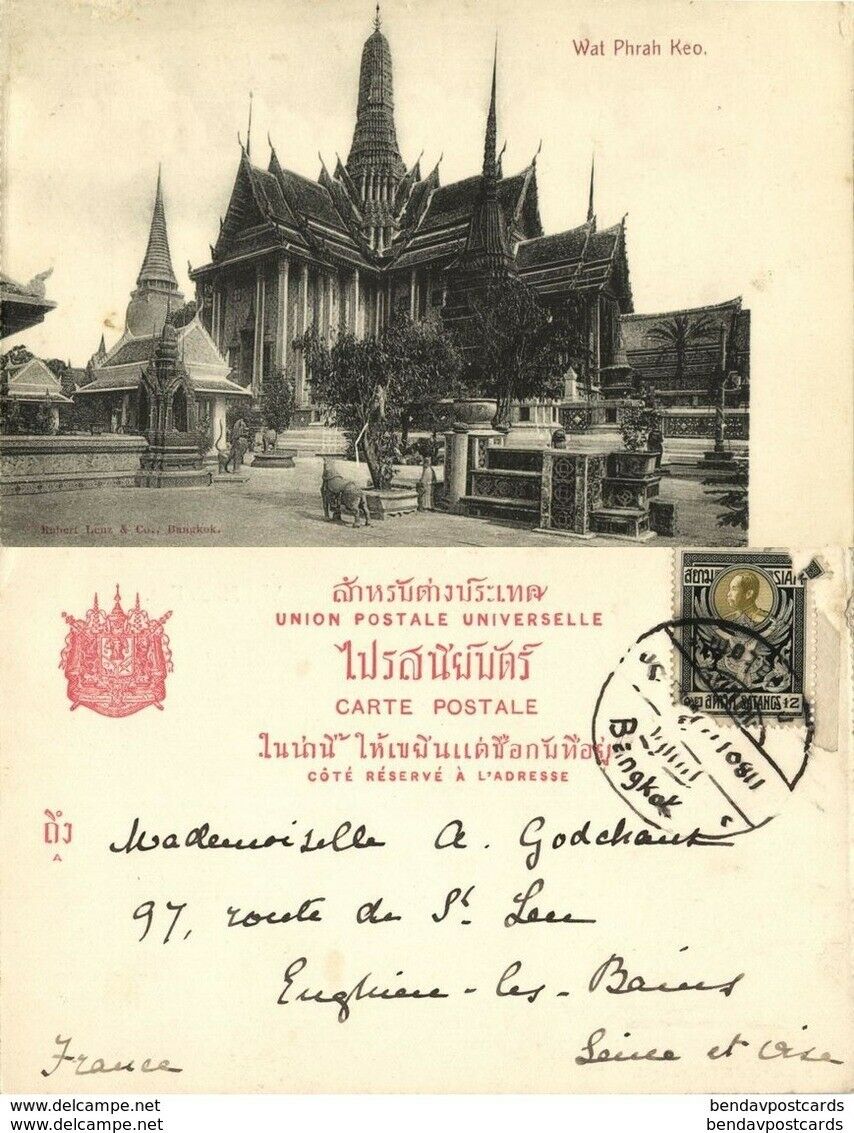 Wat Phrah Keo.
Robert Lenz & Co., Bangkok.
สำหรับต่างประเทศ
UNION POSTALE UNIVERSELLE
ไปรสนีย์บัตร์
CARTE POSTALE
ในน่านี้ ให้เขียนแต่ชื่อกับที่อยู่
CÔTÉ RÉSERVÉ À L'ADRESSE
สยาม SIAM
๑๒ สตางค์ SATANGS 12
Bangkok
ถึง
A
Mademoiselle A. Godchaux
97, route de St Leu
Enghien-les-Bains
France Seine et Oise
https://www.delcampe.net
bendavpostcards